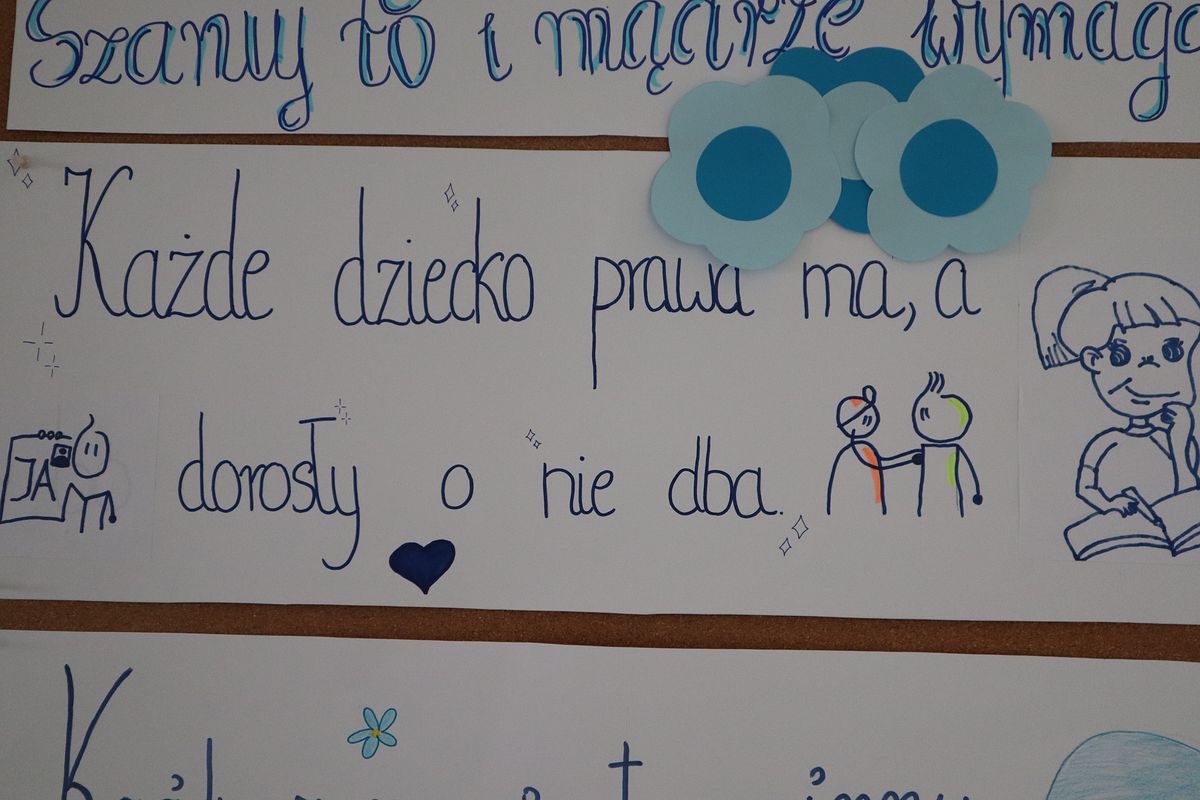 Szanuj to i mądrze wymaga
Każde dziecko prawa ma, a
JA
dorosły o nie dba.